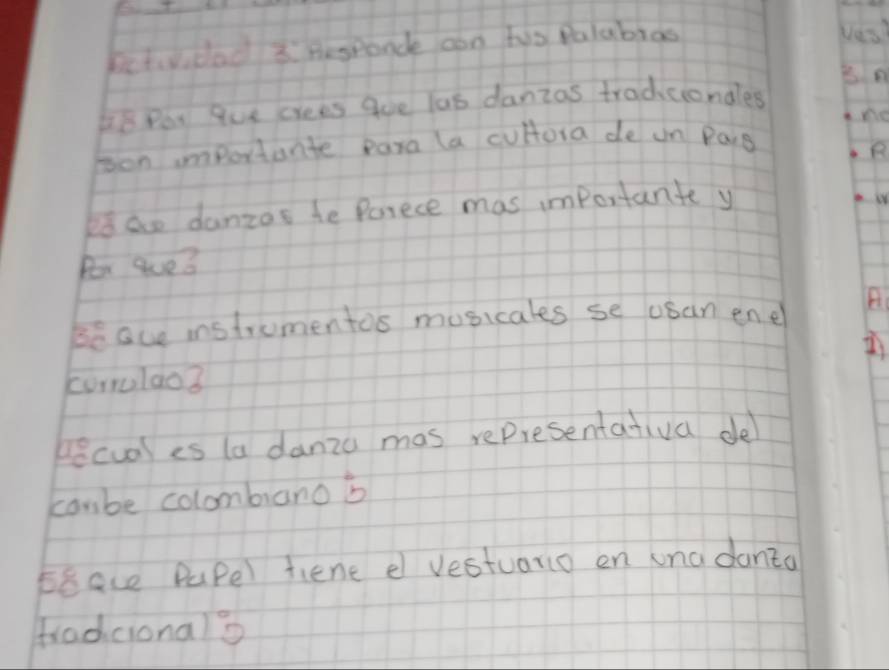 Actividad 3: Responde con tus Palabras
1. Por que crees que las danzas tradicionales
son importante para la cultora de un Pais
2. que danzas te Parece mas importante y
Por que?
3. Que instrumentos musicales se usan en el
currulao?
4. cual es la danza mas representativa del
caribe colombiano?
5. Que Papel tiene el vestuario en una danza
tradicional?